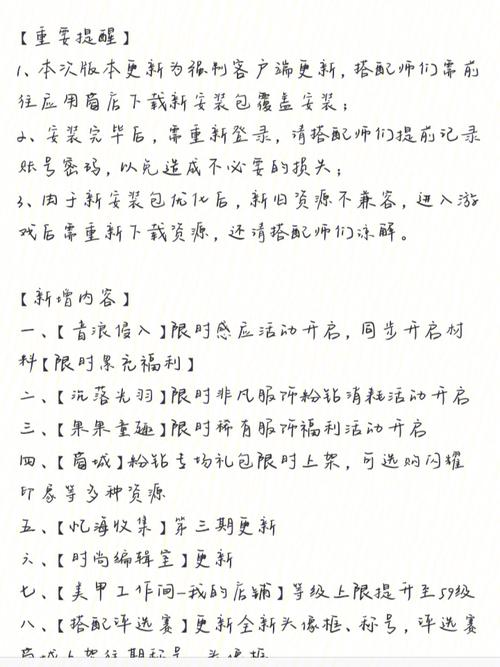 【重要提醒】
1、本次版本更新为强制客户端更新，搭配师们需前
往应用商店下载新安装包覆盖安装；
2、安装完毕后，需重新登录，请搭配师们提前记录
账号密码，以免造成不必要的损失；
3、由于新安装包优化后，新旧资源不兼容，进入游
戏后需重新下载资源，还请搭配师们谅解。
【新增内容】
一、【音浪侵入】限时感应活动开启，同步开启材
料【限时累充福利】
二、【沉落光羽】限时非凡服饰粉钻消耗活动开启
三、【果果童趣】限时稀有服饰福利活动开启
四、【商城】粉钻专场礼包限时上架，可选购闪耀
印象等多种资源
五、【忆海收集】第三期更新
六、【时尚编辑室】更新
七、【美甲工作间-我的店铺】等级上限提升至59级
八、【搭配评选赛】更新全新头像框、称号，评选赛
商城上架往期称号、头像框